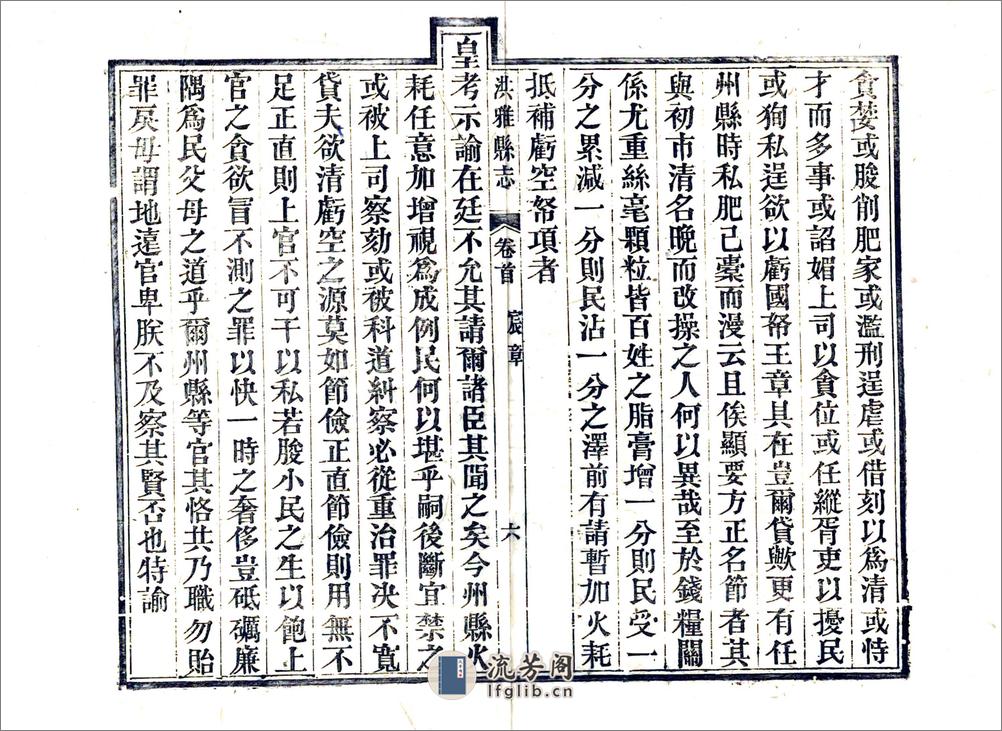 貪婪或朘削肥家或濫刑逞虐或借刻以爲清或恃
才而多事或諂媚上司以貪位或任縱胥吏以擾民
或狥私逞欲以虧國帑王章具在豈爾貸歟更有任
州縣時私肥己橐而漫云且俟顯要方正名節者其
與初市清名晚而改操之人何以異哉至於錢糧關
係尤重絲毫顆粒皆百姓之脂膏增一分則民受一
分之累减一分則民沾一分之澤前有請暫加火耗
抵補虧空帑項者
洪雅縣志 卷首 宸章 六
皇考示諭在廷不允其請爾諸臣其聞之矣今州縣火
耗任意加增視爲成例民何以堪乎嗣後斷宜禁之
或被上司察劾或被科道糾察必從重治罪决不寬
貸夫欲清虧空之源莫如節儉正直節儉則用無不
足正直則上官不可干以私若朘小民之生以飽上
官之貪欲冒不測之罪以快一時之奢侈豈砥礪廉
隅爲民父母之道乎爾州縣等官其恪共乃職勿貽
罪戾毋謂地遠官卑朕不及察其賢否也特諭
流芳阁
lfglib.cn